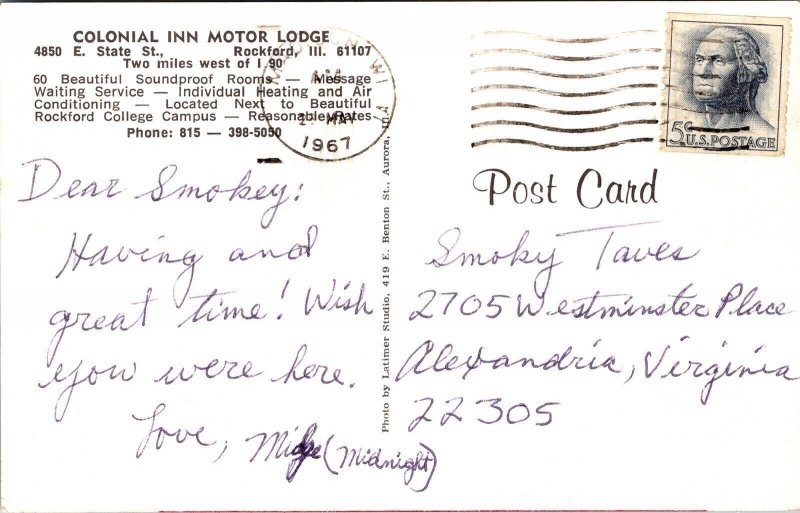 COLONIAL INN MOTOR LODGE
4850 E. State St., Rockford, Ill. 61107
Two miles west of I 90
60 Beautiful Soundproof Rooms — Message
Waiting Service — Individual Heating and Air
Conditioning — Located Next to Beautiful
Rockford College Campus — Reasonable Rates
Phone: 815 — 398-5050
WI
MAY
1967
5c U.S. POSTAGE
Post Card
Dear Smokey:
Having and
great time! Wish
you were here.
Love, Midge (Midnight)
Photo by Latimer Studio, 419 E. Benton St., Aurora, Ill.
Smoky Taves
2705 Westminster Place
Alexandria, Virginia
22305